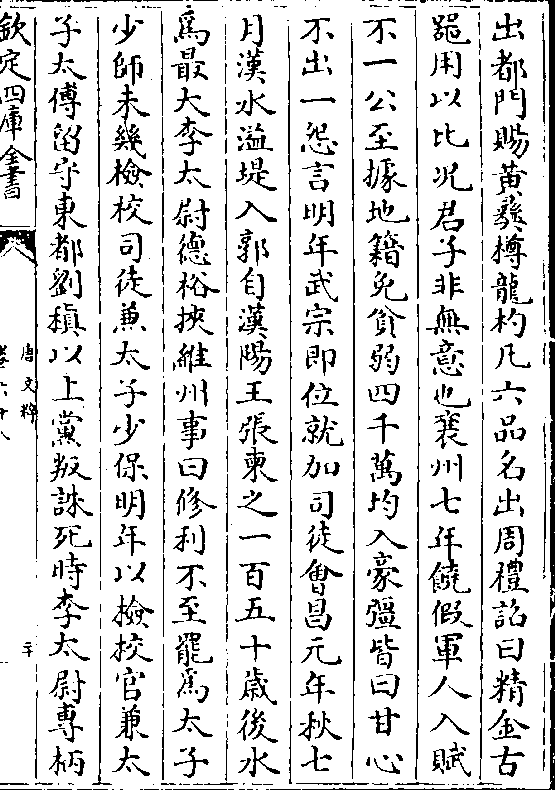 出都門賜黃彝樽龍杓凡六品名出周禮詔曰精金古
噐用以比况君子非無意也襄州七年饒假軍人入賦
不一公至據地籍免貧弱四千萬均入豪彊皆曰甘心
不出一怨言明年武宗即位就加司徒會昌元年秋七
月漢水溢堤入郭自漢陽王張柬之一百五十歲後水
爲最大李太尉德裕挾維州事曰修利不至罷爲太子
少師未幾檢校司徒兼太子少保明年以撿挍官兼太
子太傅留守東都劉稹以上黨叛誅死時李太尉專柄
欽定四庫全書
唐文粹
卷六十八